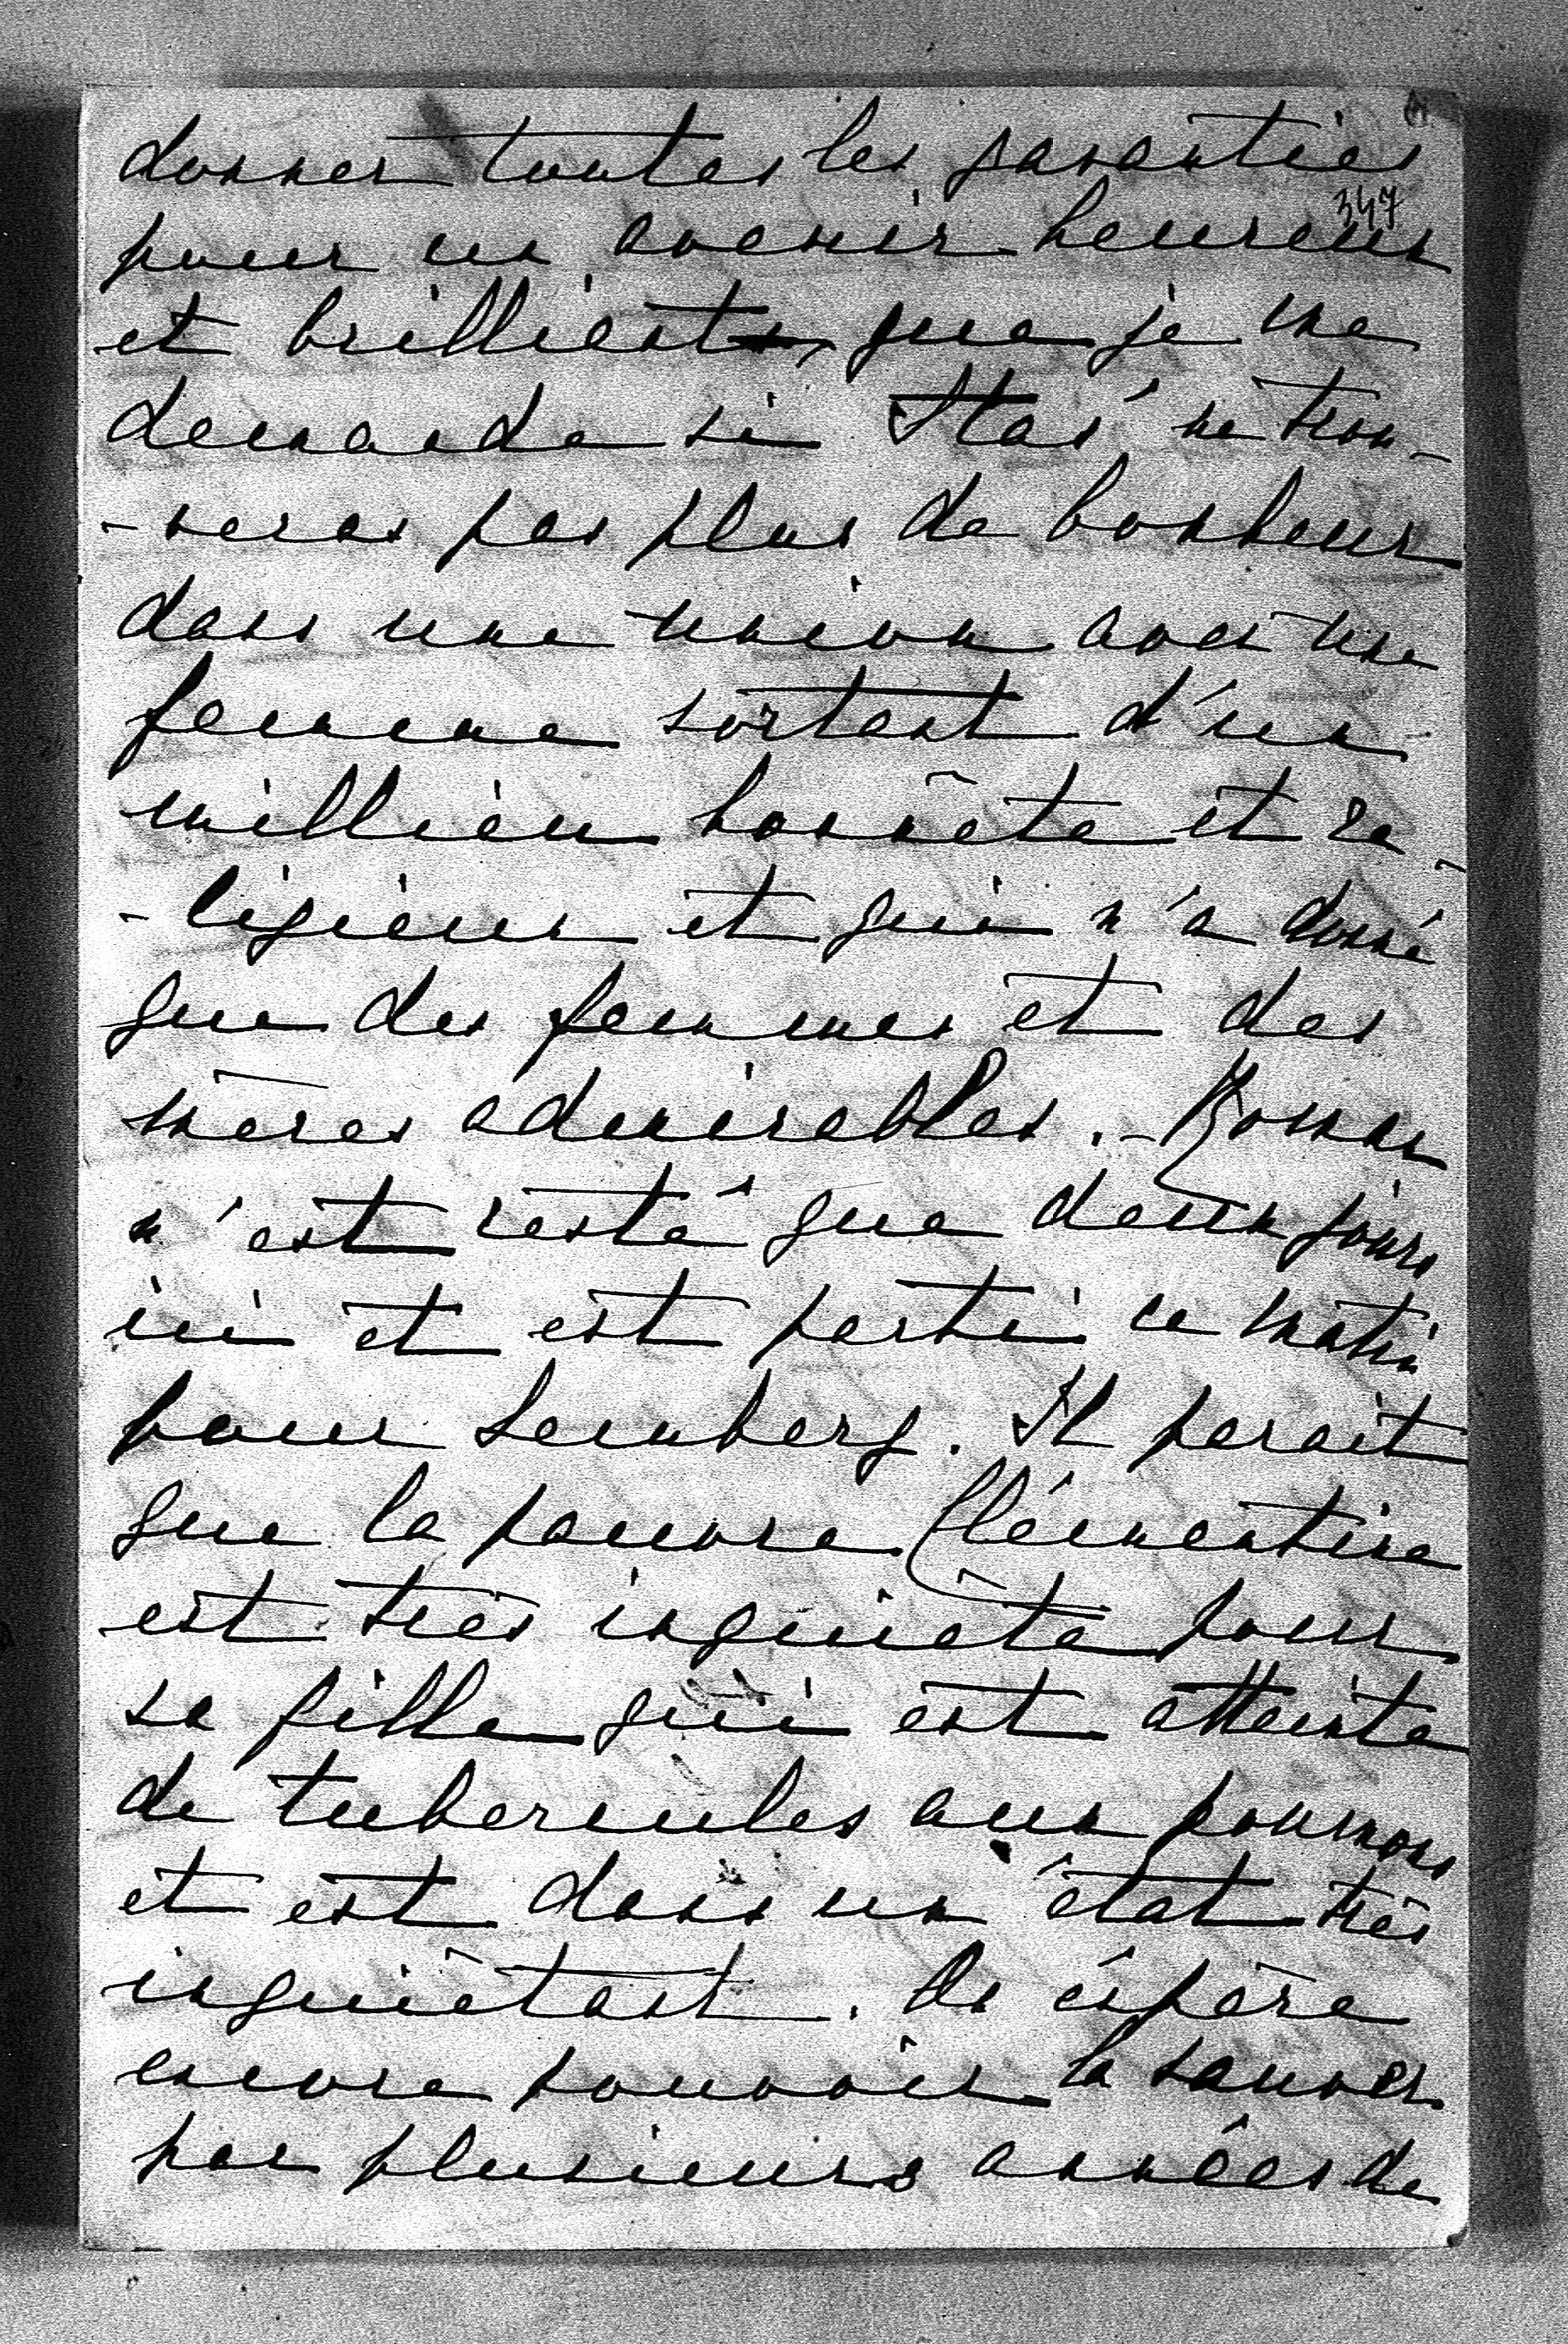 donner toutes les garanties
347
pour un avenir heureux
et brilliant, que je me
demande si Staś ne trou-
-veras pas plus de bonheur
dans une union avec une
femme sortant d'un
millieu honnête et re-
-ligieux et qui n'a donné
que des femmes et des
mères admirables. - Roman
n'est resté que deux jours
ici et est parti ce matin
pour Lemberg. Il parait
que la pauvre Clémentine
est très inquiète pour
sa fille qui est atteinte
de tubercules aux poumons
et est dans un état très
inquiètant. On éspère
encore pouvoir la sauver
par plusieurs années de